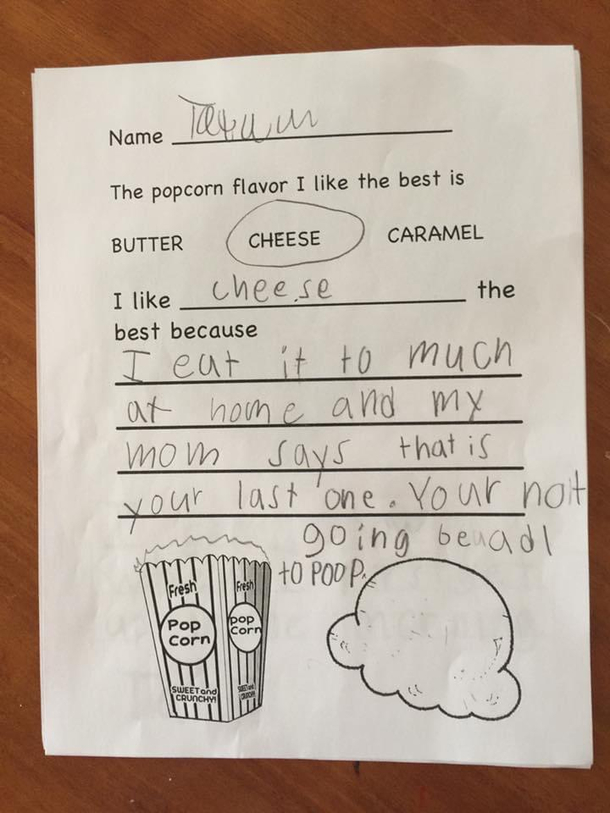 Name Tatum
The popcorn flavor I like the best is
BUTTER CHEESE CARAMEL
I like cheese the
best because
I eat it to much
at home and my
mom says that is
your last one. Your not
going be adl
to POOP.
Fresh Fresh
Pop pop
Corn Corn
SWEET and
CRUNCHY!